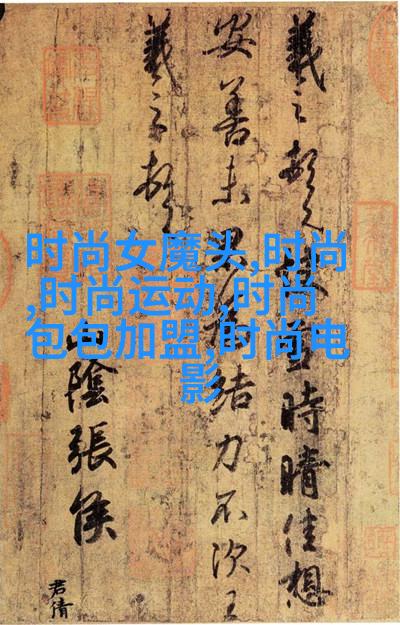 时尚女魔头,时尚
,时尚运动,时尚
包包加盟,时尚电
影
羲之頓首快雪時晴佳想
安善未果為結力不次王
羲之頓首
山陰張侯
君倩